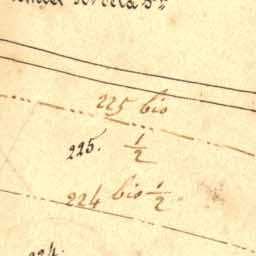 225 bio
225. 1/2
224 bio 1/2
224.